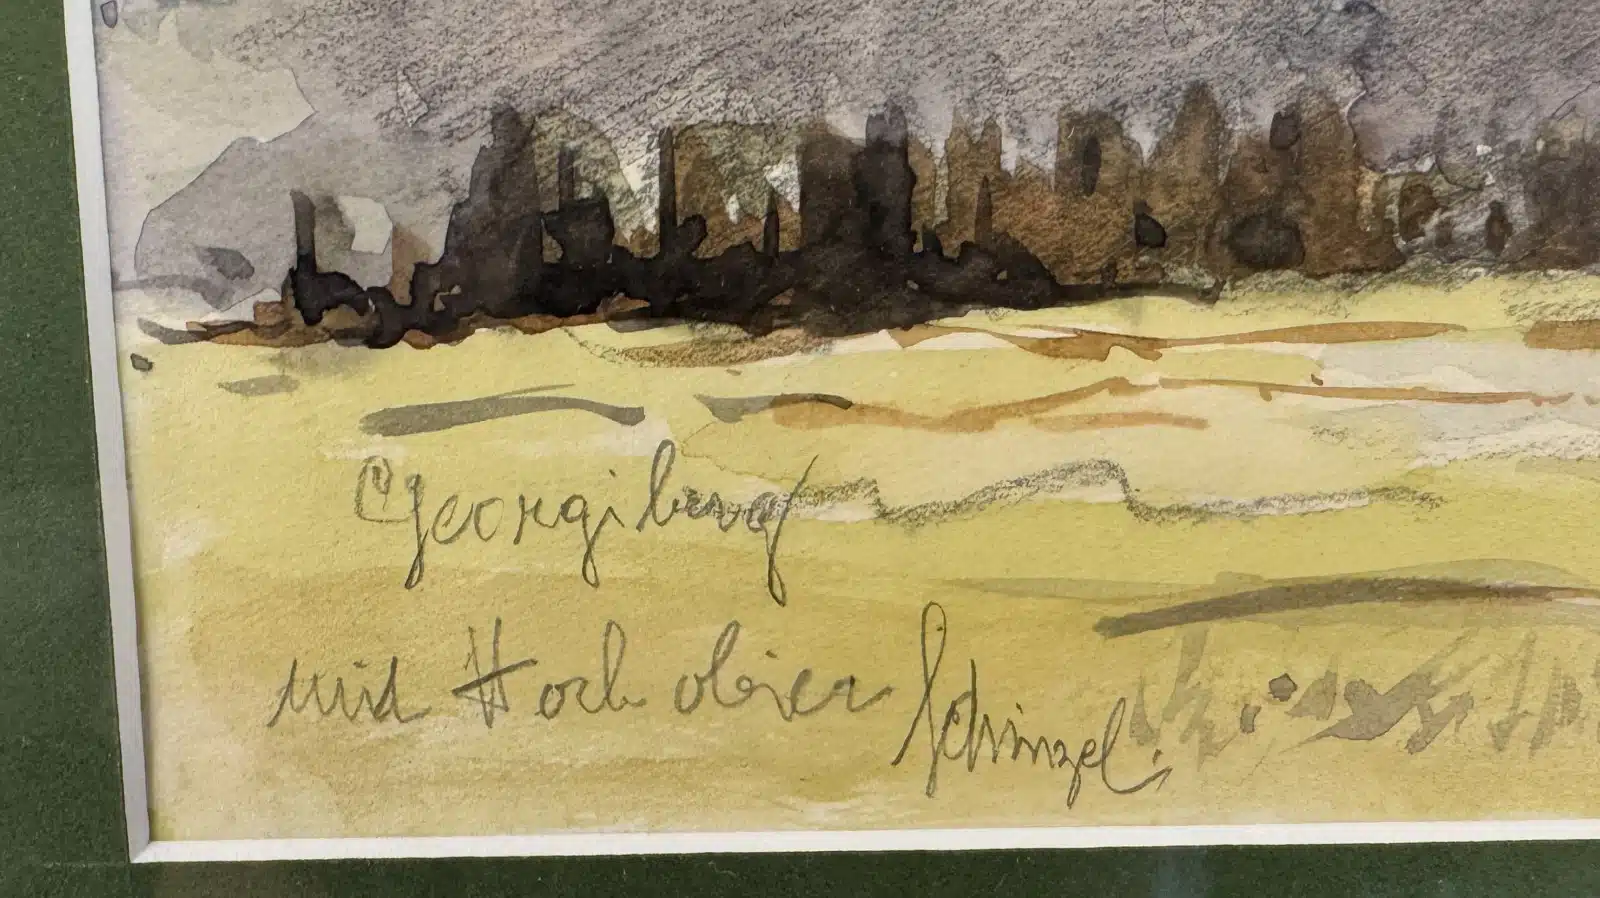 Georgiberg
mit Hochobier Schinzel.